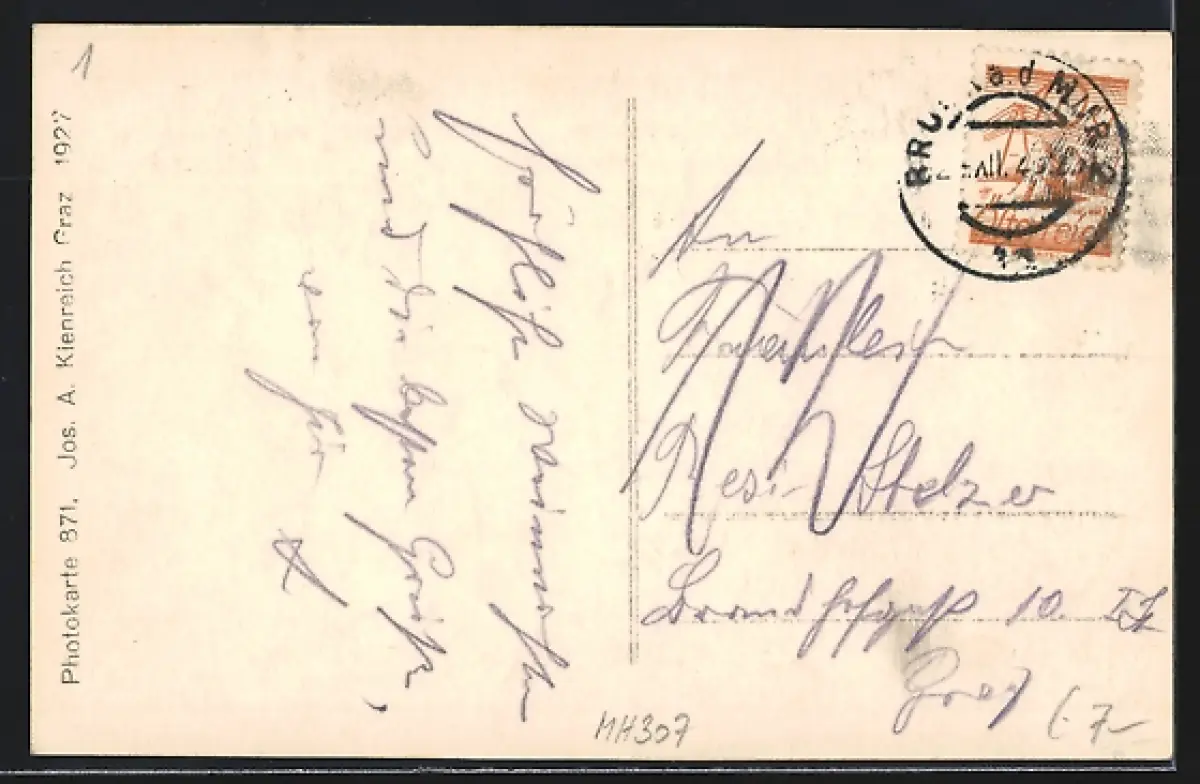 1
Photokarte 871. Jos. A. Kienreich Graz 1927
Fröhliche Weihnachten
und die besten Grüße,
von
BRUCK a.d. MUR 2
XII.
Österreich
An
Fräulein
Resi Stelzer
10. II
Graz
MH307
7-